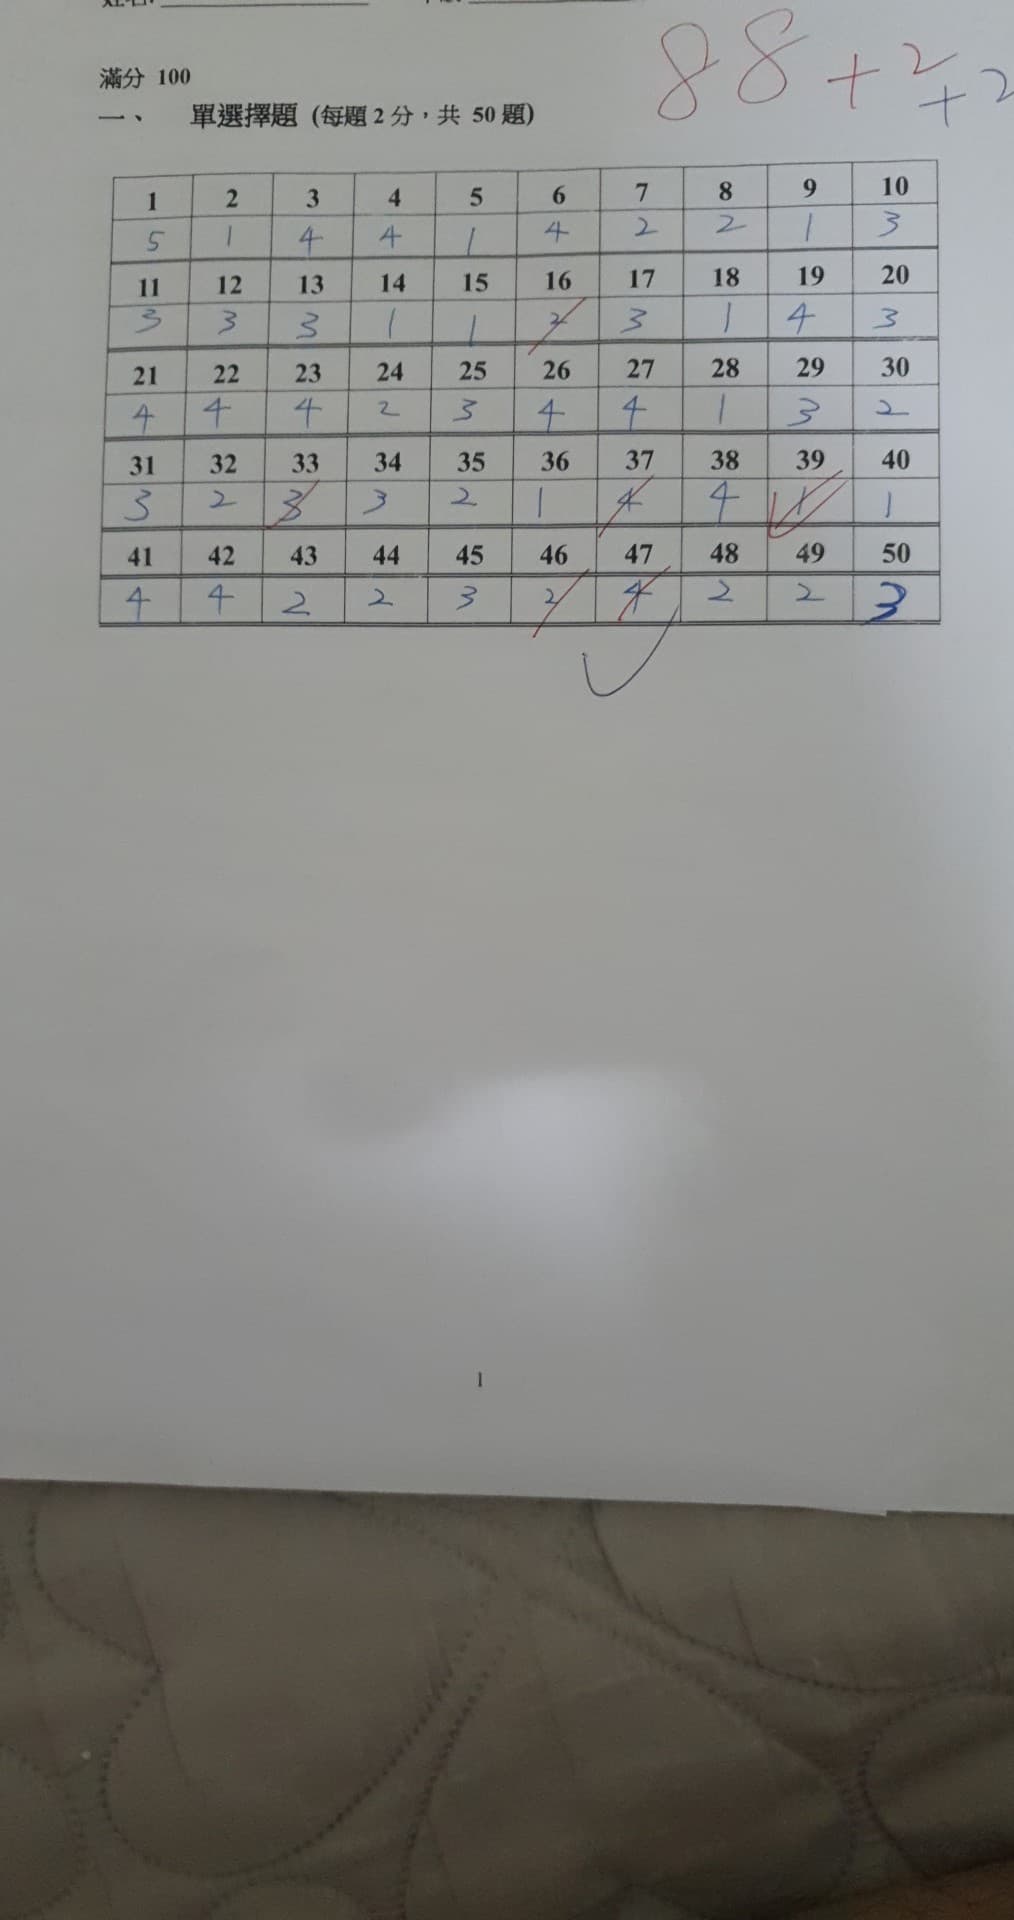 88+2+2
滿分 100
一、 單選擇題 (每題 2 分，共 50 題)
1 2 3 4 5 6 7 8 9 10
5 1 4 4 1 4 2 2 1 3
11 12 13 14 15 16 17 18 19 20
3 3 3 1 1 2 3 1 4 3
21 22 23 24 25 26 27 28 29 30
4 4 4 2 3 4 4 1 3 2
31 32 33 34 35 36 37 38 39 40
3 2 3 3 2 1 4 4 1 1
41 42 43 44 45 46 47 48 49 50
4 4 2 2 3 2 4 2 2 3
1